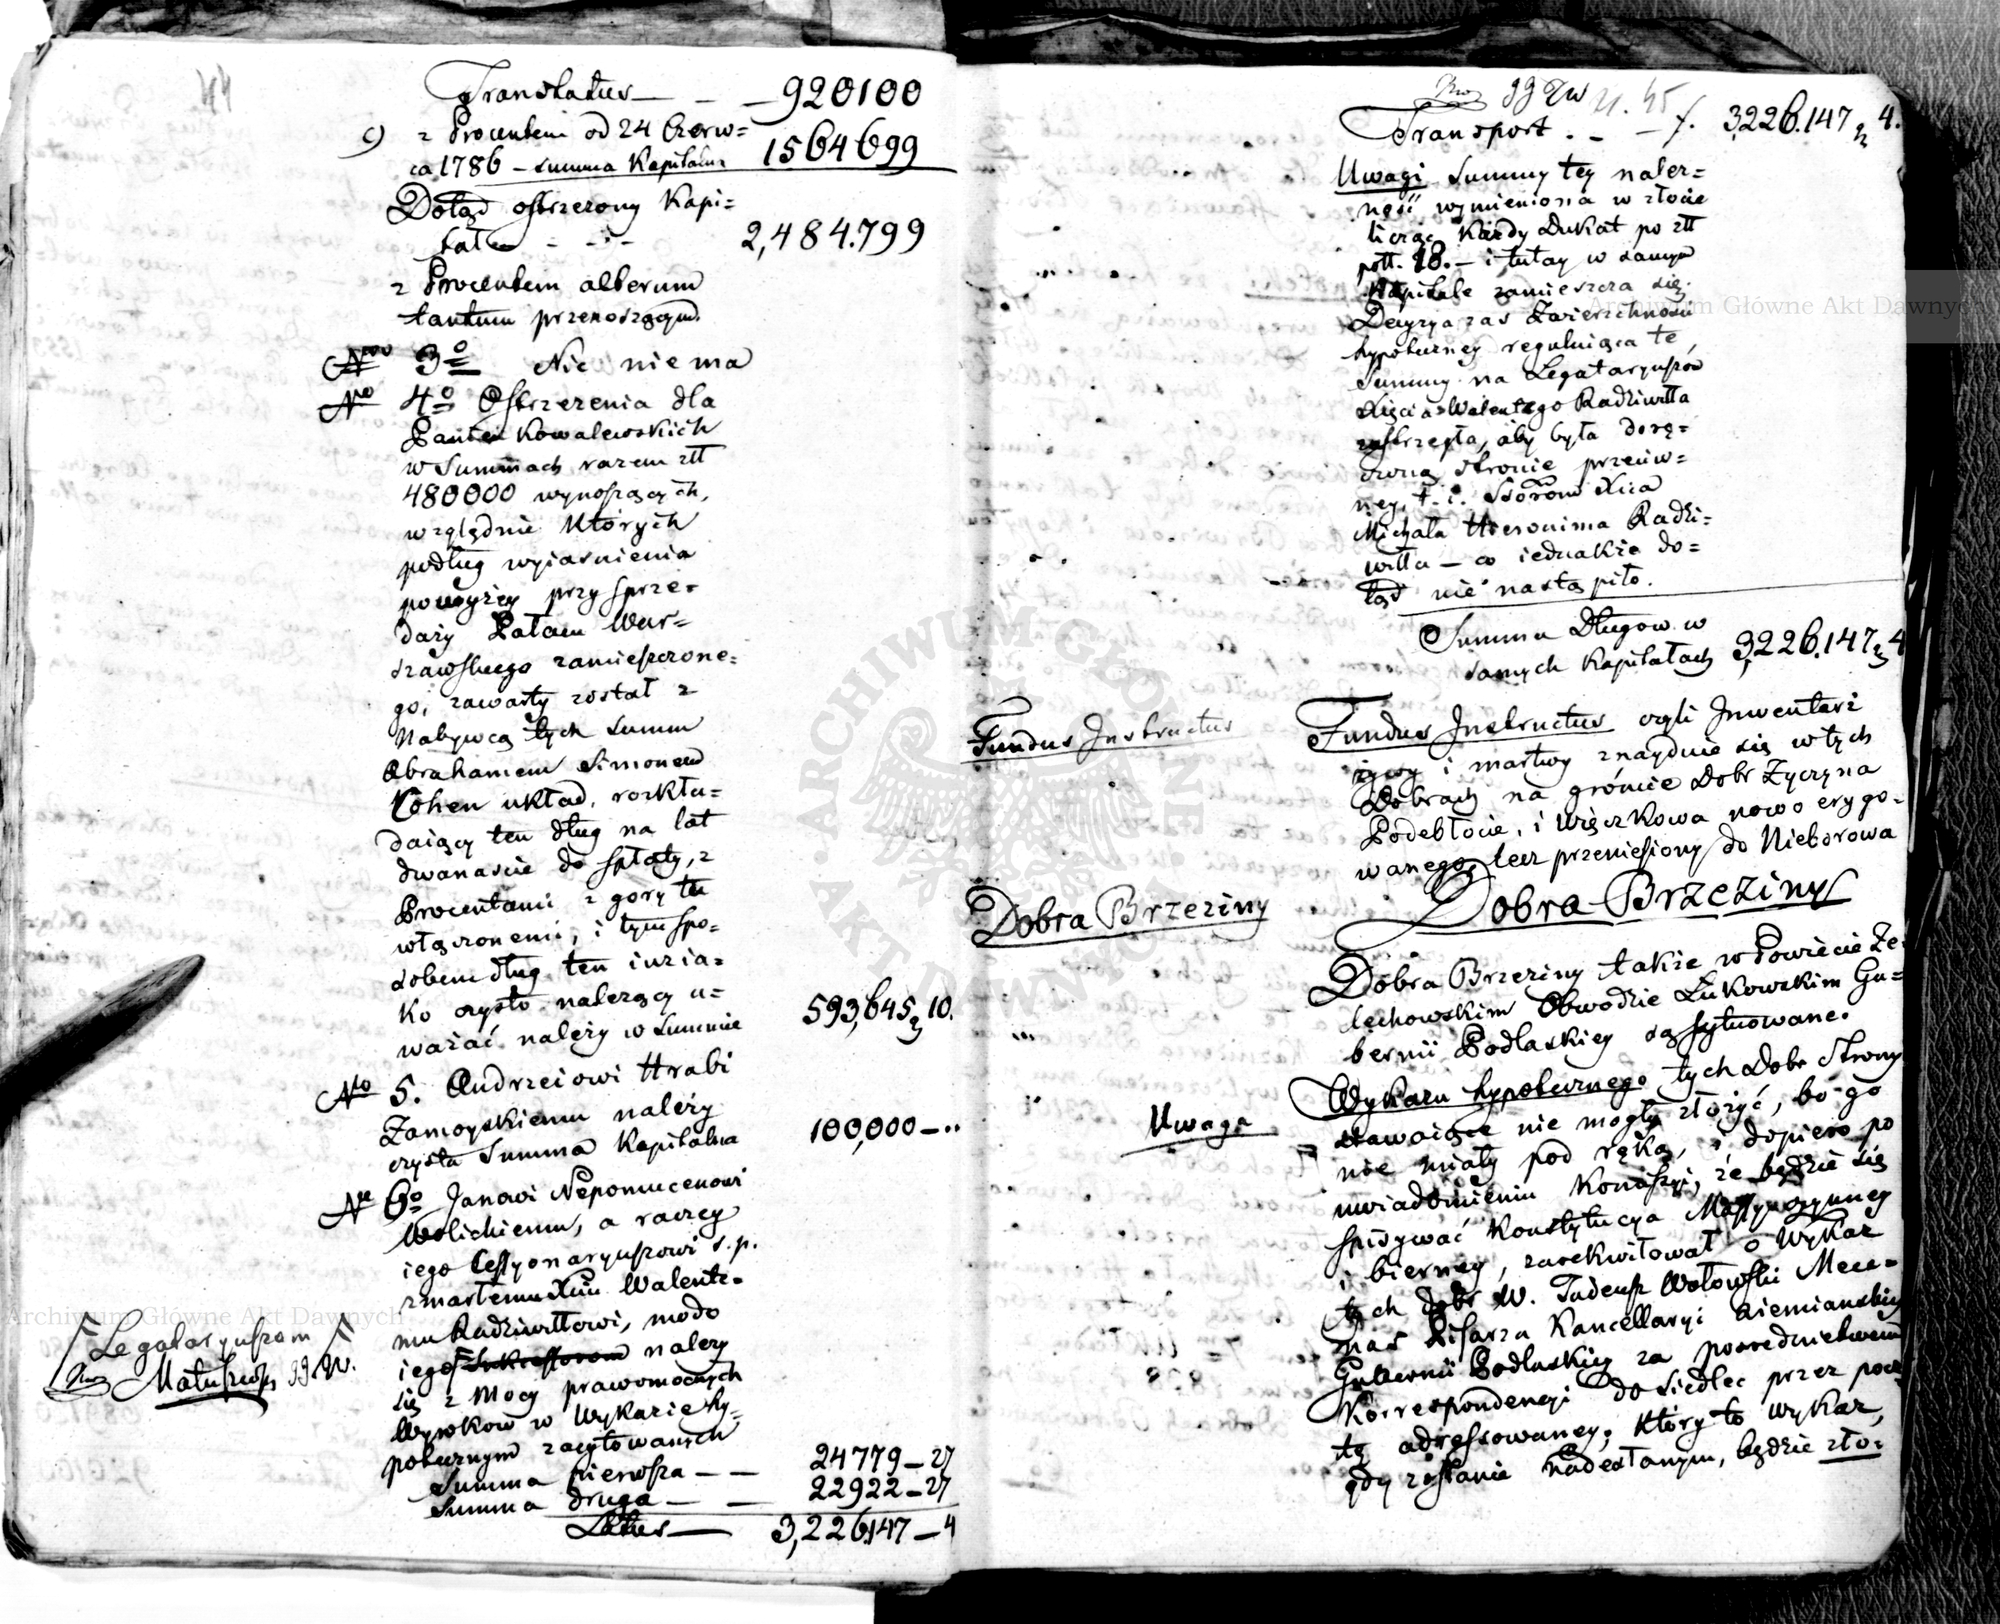 44
Translatus — — — 920100
c) z Procentem od 24 Czerw=
ca 1786 — summa Kapitalna 1564699
Dotąd ostrzeżony Kapi=
tał — — — 2,484.799
z Procentem alterum
tantum przenoszącym.
Nro 3o Nic nie ma
No 4o Ostrzeżenia dla
Panien Kowalewskich
w Summach razem złł
480000 wynoszących,
względnie których
podług wyiaśnienia
powyżey przy sprze=
daży Pałacu War=
szawskiego zamieszczone=
go, zawarty został z
Nabywcą tych Summ
Abrahamem Simonem
Cohen układ, rozkła=
daiący ten dług na lat
dwanaście do spłaty, z
Procentami z góry tu
włączonemi, i tym spo=
sobem dług ten iuż ia=
ko czysto należący u=
ważać należy w Summie 593,645 10.
No 5. Andrzeiowi Hrabi
Zamoyskiemu należy
czysta Summa Kapitalna 100,000 — ..
No 6o Janowi Nepomucenowi
Wolickiemu, a raczey
iego Cessyonaryuszowi ś.p.
zmarłemu Xciu Walente=
mu Radziwiłłowi, modo
iego Sukcessorom należy
się z Mocy prawomocnych
Wyroków w Wykazie hy=
potecznym zacytowanych
Legataryuszom
Matuszewski
Summa pierwsza — — 24779 — 27
Summa druga — — 22922 — 27
Latus — 3,226147 — 4
n. 45
Transport . — — f. 3,226.147 4.
Uwagi Summy tey należ=
ność wymieniona w złocie
licząc każdy Dukat po złł
poll. 18. — i tutay w samym
Kapitale zamieszcza się.
Decyzya zaś Zwierzchności
hypoteczney reguluiąca te
Summy na Legataryuszów
Xięcia Walentego Radziwiłła
zastrzegła, aby była dorę=
czoną stronie przeciw=
ney, t. i. Ssorom Xcia
Michała Hieronima Radzi=
wiłła — co iednakże do=
tąd nie nastąpiło.
Summa Długów w
samych Kapitałach 3,226.147 4
Fundus Instructus
Fundus Instructus czyli Inwentarz
żywy i martwy znayduie się w tych
Dobrach na gróncie Dobr Życzyna
Podebłocie, i Więczkowa nowo erygo=
wanego, lecz przeniesiony do Nieborowa
Dobra Brzeziny
Dobra Brzeziny
Dobra Brzeziny także w Powiecie Że=
lechowskim Obwodzie Łukowskim Gu=
bernii Podlaskiey są sytuowane.
Uwaga
Wykazu hypotecznego tych Dobr Strony
stawaiące nie mogły złożyć, bo go
nie miały pod ręką, i dopiero po
uwiadomieniu Kommissyi, że będzie się
spisywać Konstytucya Massy czynney
i bierney, zarekwirował o Wykaz
tych dobr W. Tadeusz Wołowski Mece=
nas Pisarza Kancellaryi Ziemiańskiey
Gubernii Podlaskiey za pośrednictwem
Korrespondencyi do Siedlec przez pocz=
tę adressowaney; który to wykaz,
gdy zostanie nadesłanym, będzie zło=
Archiwum Główne Akt Dawnych
Archiwum Główne Akt Dawnych
ARCHIWUM GŁÓWNE AKT DAWNYCH